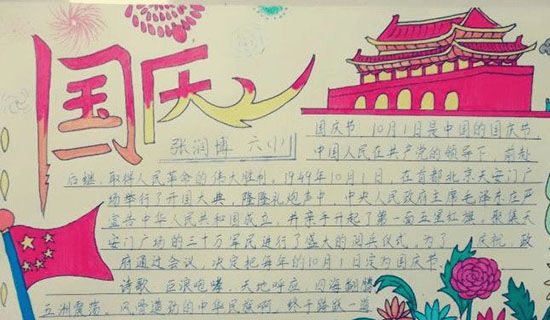 国庆
张润博 六(1)
国庆节，10月1日是中国的国庆节，
中国人民在共产党的领导下，前赴
后继，取得人民革命的伟大胜利，1949年10月1日，在首都北京天安门
广场举行了开国大典，隆隆礼炮声中，中央人民政府主席毛泽东庄严
宣告中华人民共和国成立，并亲手升起了第一面五星红旗，聚集天
安门广场的三十万军民进行了盛大的阅兵仪式，为了 庆祝，政
府通过会议，决定把每年的10月1日定为国庆节
诗歌：巨浪咆哮，天地呼应，四海翻腾
五洲震荡，风雷激动的中华民族啊，终于